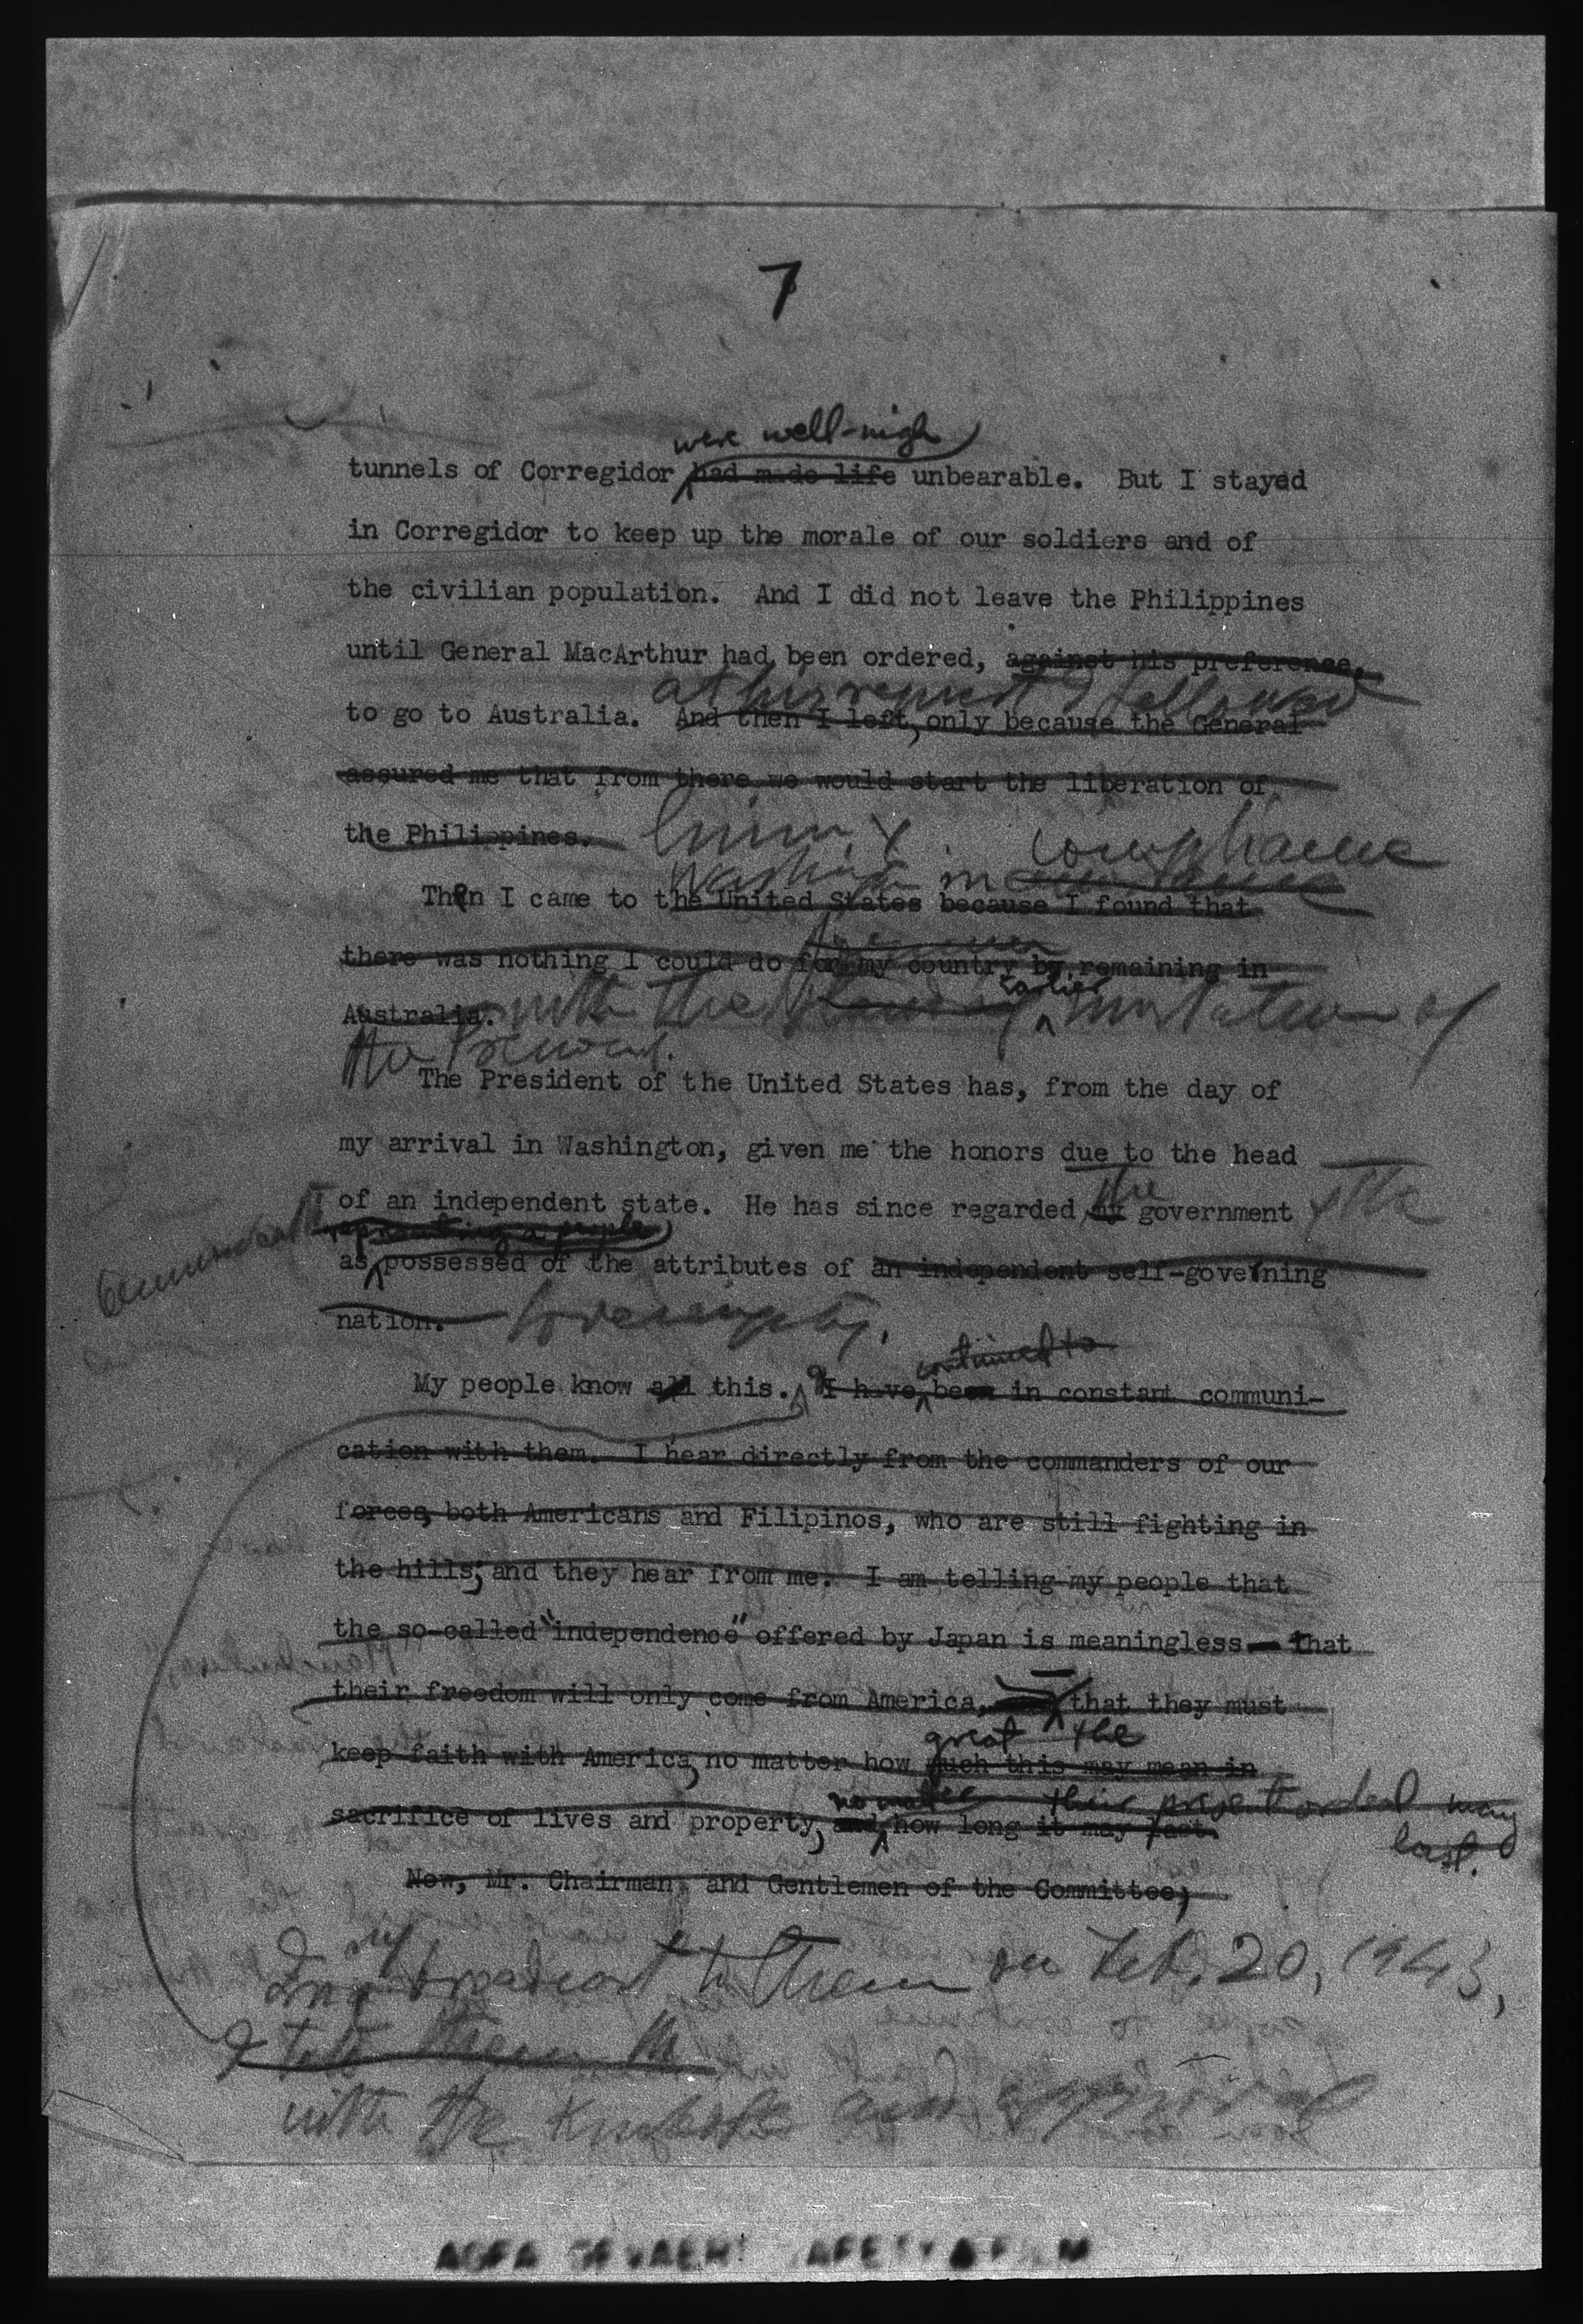 7
were well-nigh
tunnels of Corregidor had made life unbearable. But I stayed
in Corregidor to keep up the morale of our soldiers and of
the civilian population. And I did not leave the Philippines
until General MacArthur had been ordered, against his preference,
at his request I followed
to go to Australia. And then I left, only because the General
assured me that from there we would start the liberation of
the Philippines. him
compliance
Washington in
Then I came to the United States because I found that
there was nothing I could do for my country by remaining in
earlier
Australia. with the invitation of
the President.
The President of the United States has, from the day of
my arrival in Washington, given me the honors due to the head
the
of an independent state. He has since regarded my government of the
Commonwealth
representing a people
as possessed of the attributes of an independent self-governing
nation. sovereignty.
continued to
My people know all this. I have been in constant communi-
cation with them. I hear directly from the commanders of our
forces, both Americans and Filipinos, who are still fighting in
the hills; and they hear from me. I am telling my people that
the so-called "independence" offered by Japan is meaningless — that
their freedom will only come from America, that they must
great the
keep faith with America, no matter how much this may mean in
no matter their present ordeal may
sacrifice of lives and property, and how long it may last.
last.
Now, Mr. Chairman, and Gentlemen of the Committee,
In my broadcast to them on Feb. 20, 1943,
I told them
with the knowledge and approval
AGFA GEVAERT SAFETY FILM